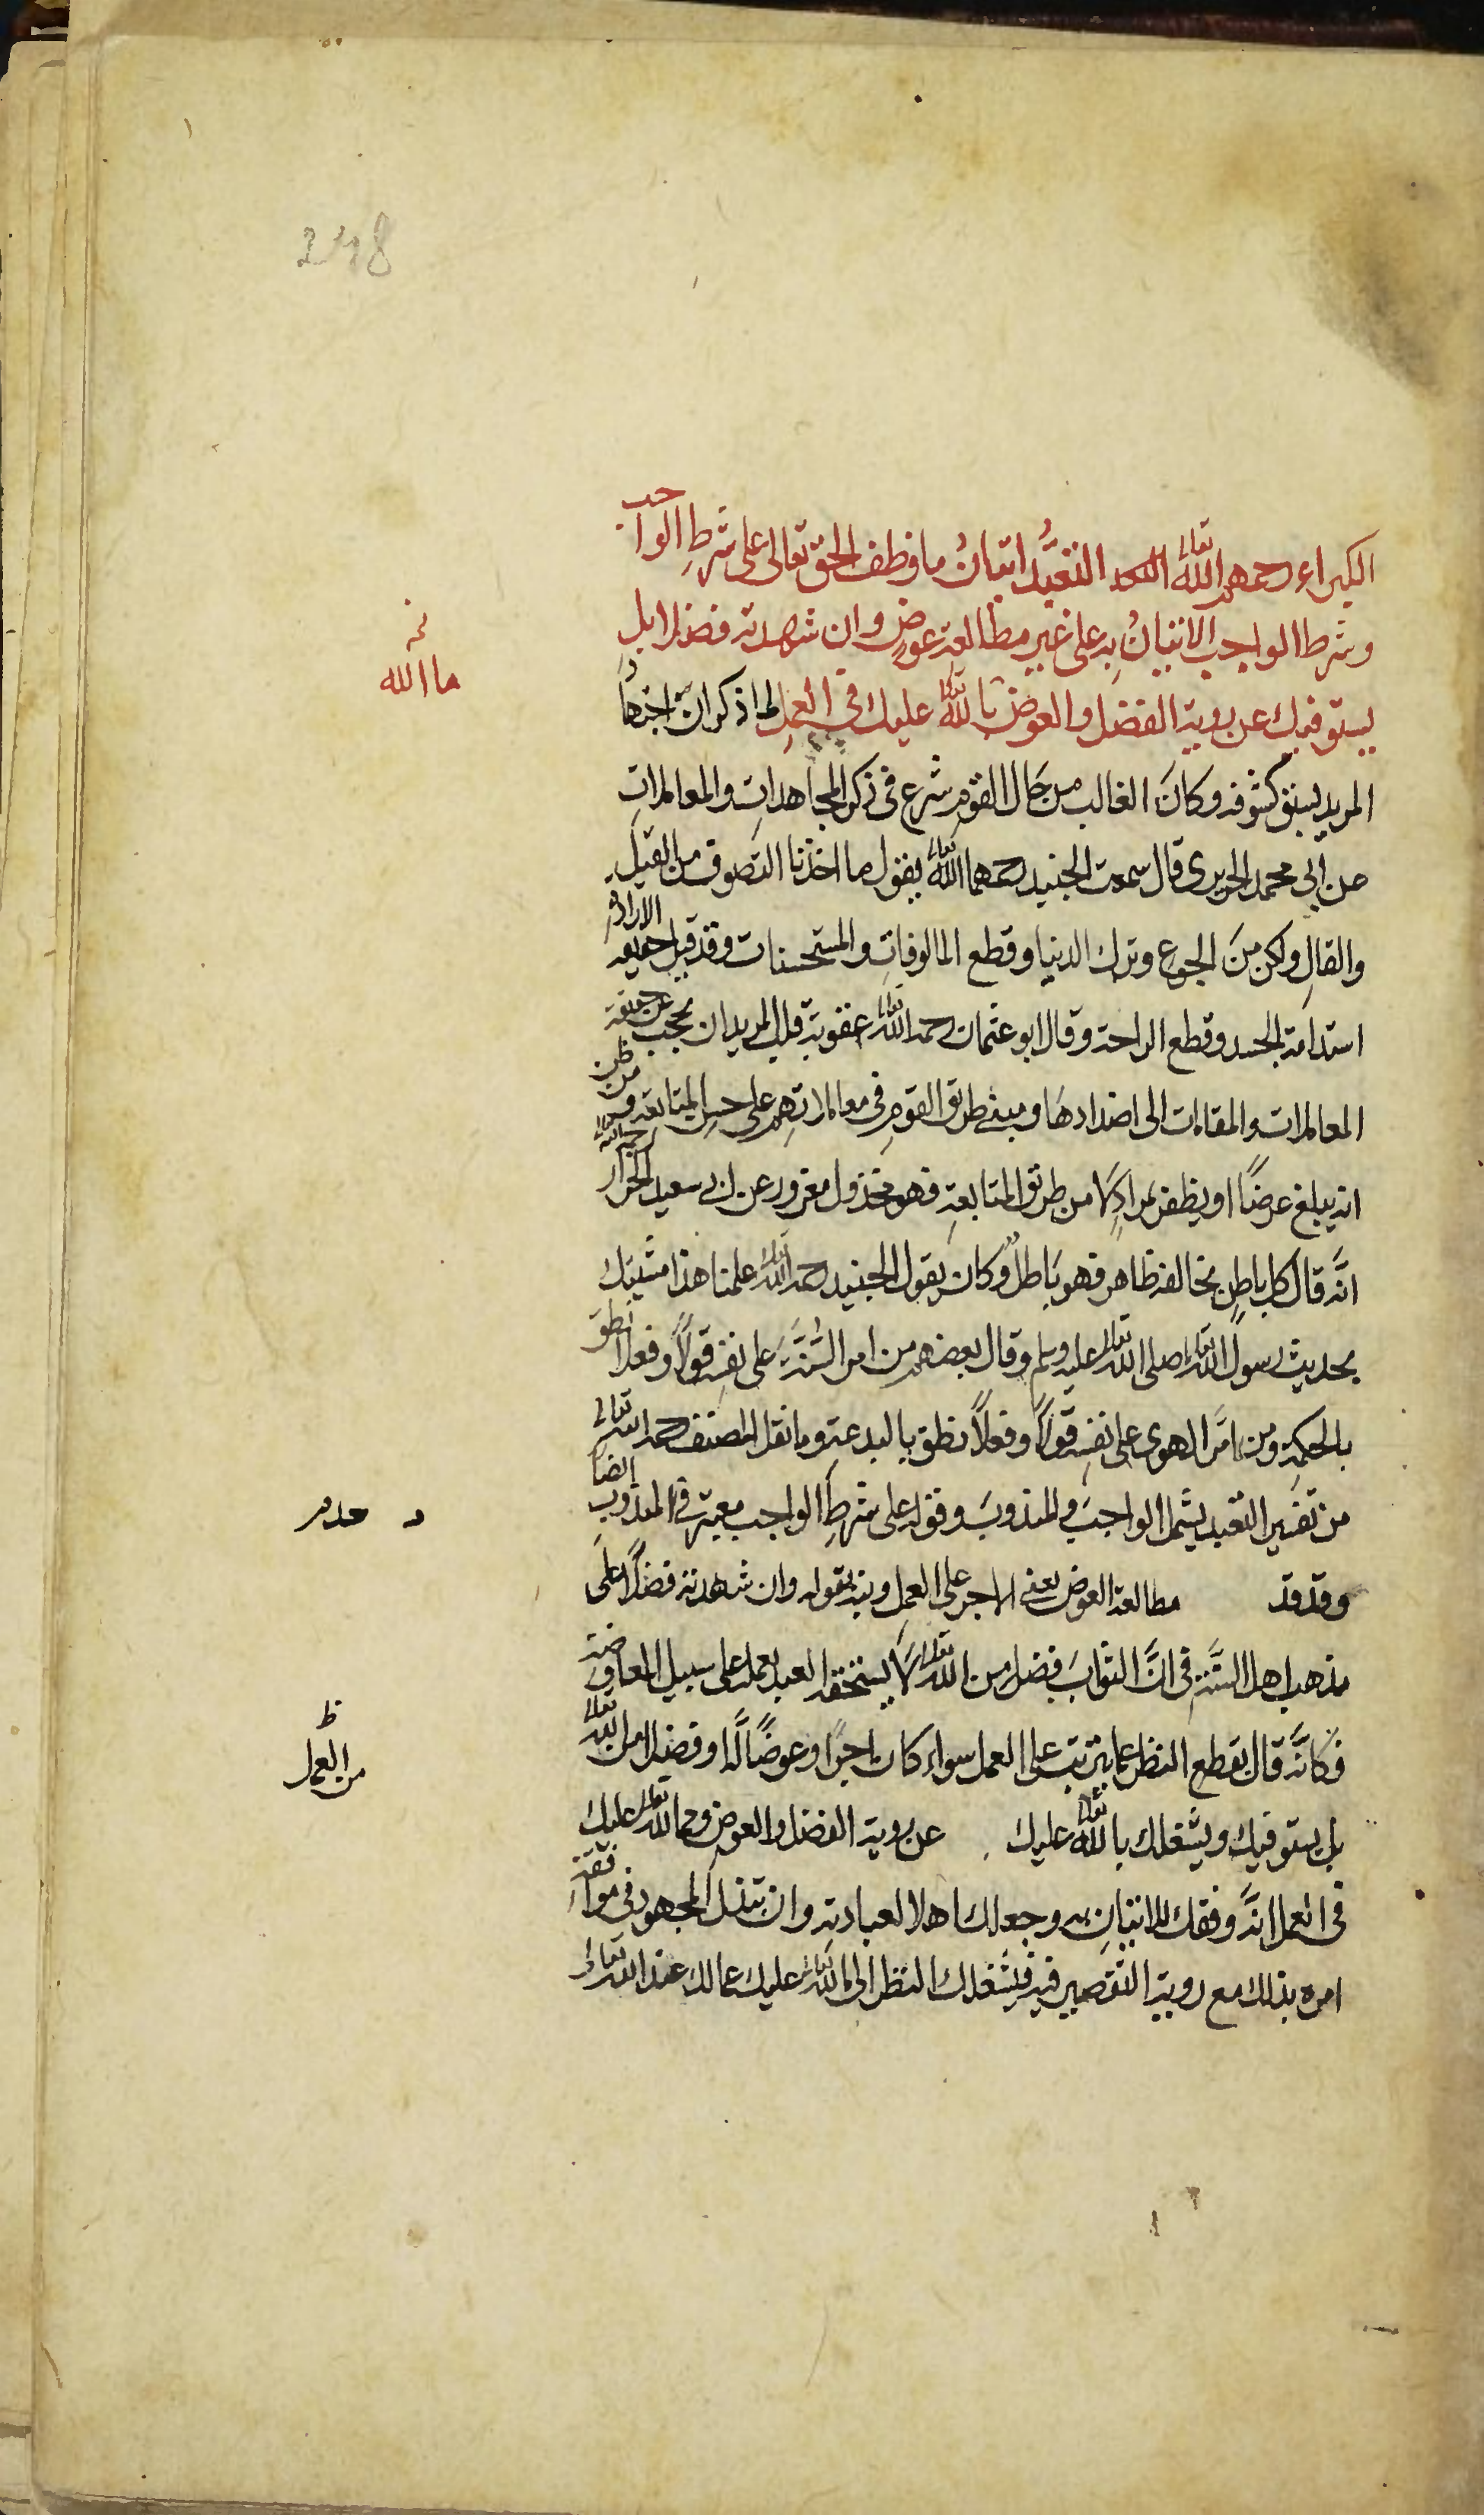 248
الكبراء رحمهم الله تعالى التعبد اتيان ما وظف الحق تعالى على شرط الواجب
وشرط الواجب الاتيان به على غير مطالعة عوض وان شهدته فضلا بل
يستوفيك عن روية الفضل والعوض ما لله تعالى عليك في العمل لما ذكر ان اجتهاد
المريد يسبق كشوفه وكان الغالب من حال القوم شرع في ذكر المجاهدات والمعاملات
عن ابي محمد الجريري قال سمعت الجنيد رحمهما الله تعالى يقول ما اخذنا التصوف من القيل
والقال ولكن من الجوع وترك الدنيا وقطع المالوفات والمستحسنات وقد قيل حقيقة الارادة
استدامة الجسد وقطع الراحة وقال ابو عثمان رحمه الله تعالى عقوبة قلب المريد ان يحجب عن حقيقة
المعاملات والمقامات الى اضدادها ومبنى طريق القوم في معاملاتهم على حسن المتابعة ومن ظن
انه يبلغ عرضًا او يظفر بمراد لا من طريق المتابعة فهو مخذول مغرور عن ابى سعيد الخراز رحمه الله تعالى
انه قال كل باطن يخالفه ظاهر فهو باطل وكان يقول الجنيد رحمه الله تعالى علمنا هذا مشبك
بحديث رسول الله تعالى صلى الله تعالى عليه وسلم وقال بعضهم من امر السنة على نفسه قولًا وفعلًا نطق
بالحكمة ومن امر الهوى على نفسه قولًا وفعلًا نطق بالبدعة وما نقل المصنف رحمه الله تعالى
من تفسير التعبد يشمل الواجب والمندوب وقوله على شرط الواجب معتبر في المندوب ايضًا
وقد قد مطالعة العوض يعنى الاجر على العمل ونبه بقوله وان شهدته فضلًا على
مذهب اهل السنة في ان الثواب فضل من الله تعالى لا يستحقه العبد بعمله على سبيل المعاوضة
فكانه قال بقطع النظر عما يترتب على العمل سواء كان اجرًا وعوضًا له او فضلا من الله تعالى
بل يستوفيك ويشغلك ما لله تعالى عليك عن روية الفضل والعوض وما لله تعالى عليك
في العمل انه وفقك للاتيان به وجعلك اهلا لعبادته وان تبذل المجهود في موافقة
امره بذلك مع روية التقصير فيه فيشغلك النظر الى ما لله تعالى عليك عما لك عند الله تعالى
نخـ
ما الله
د عدم
ظ
من العمل